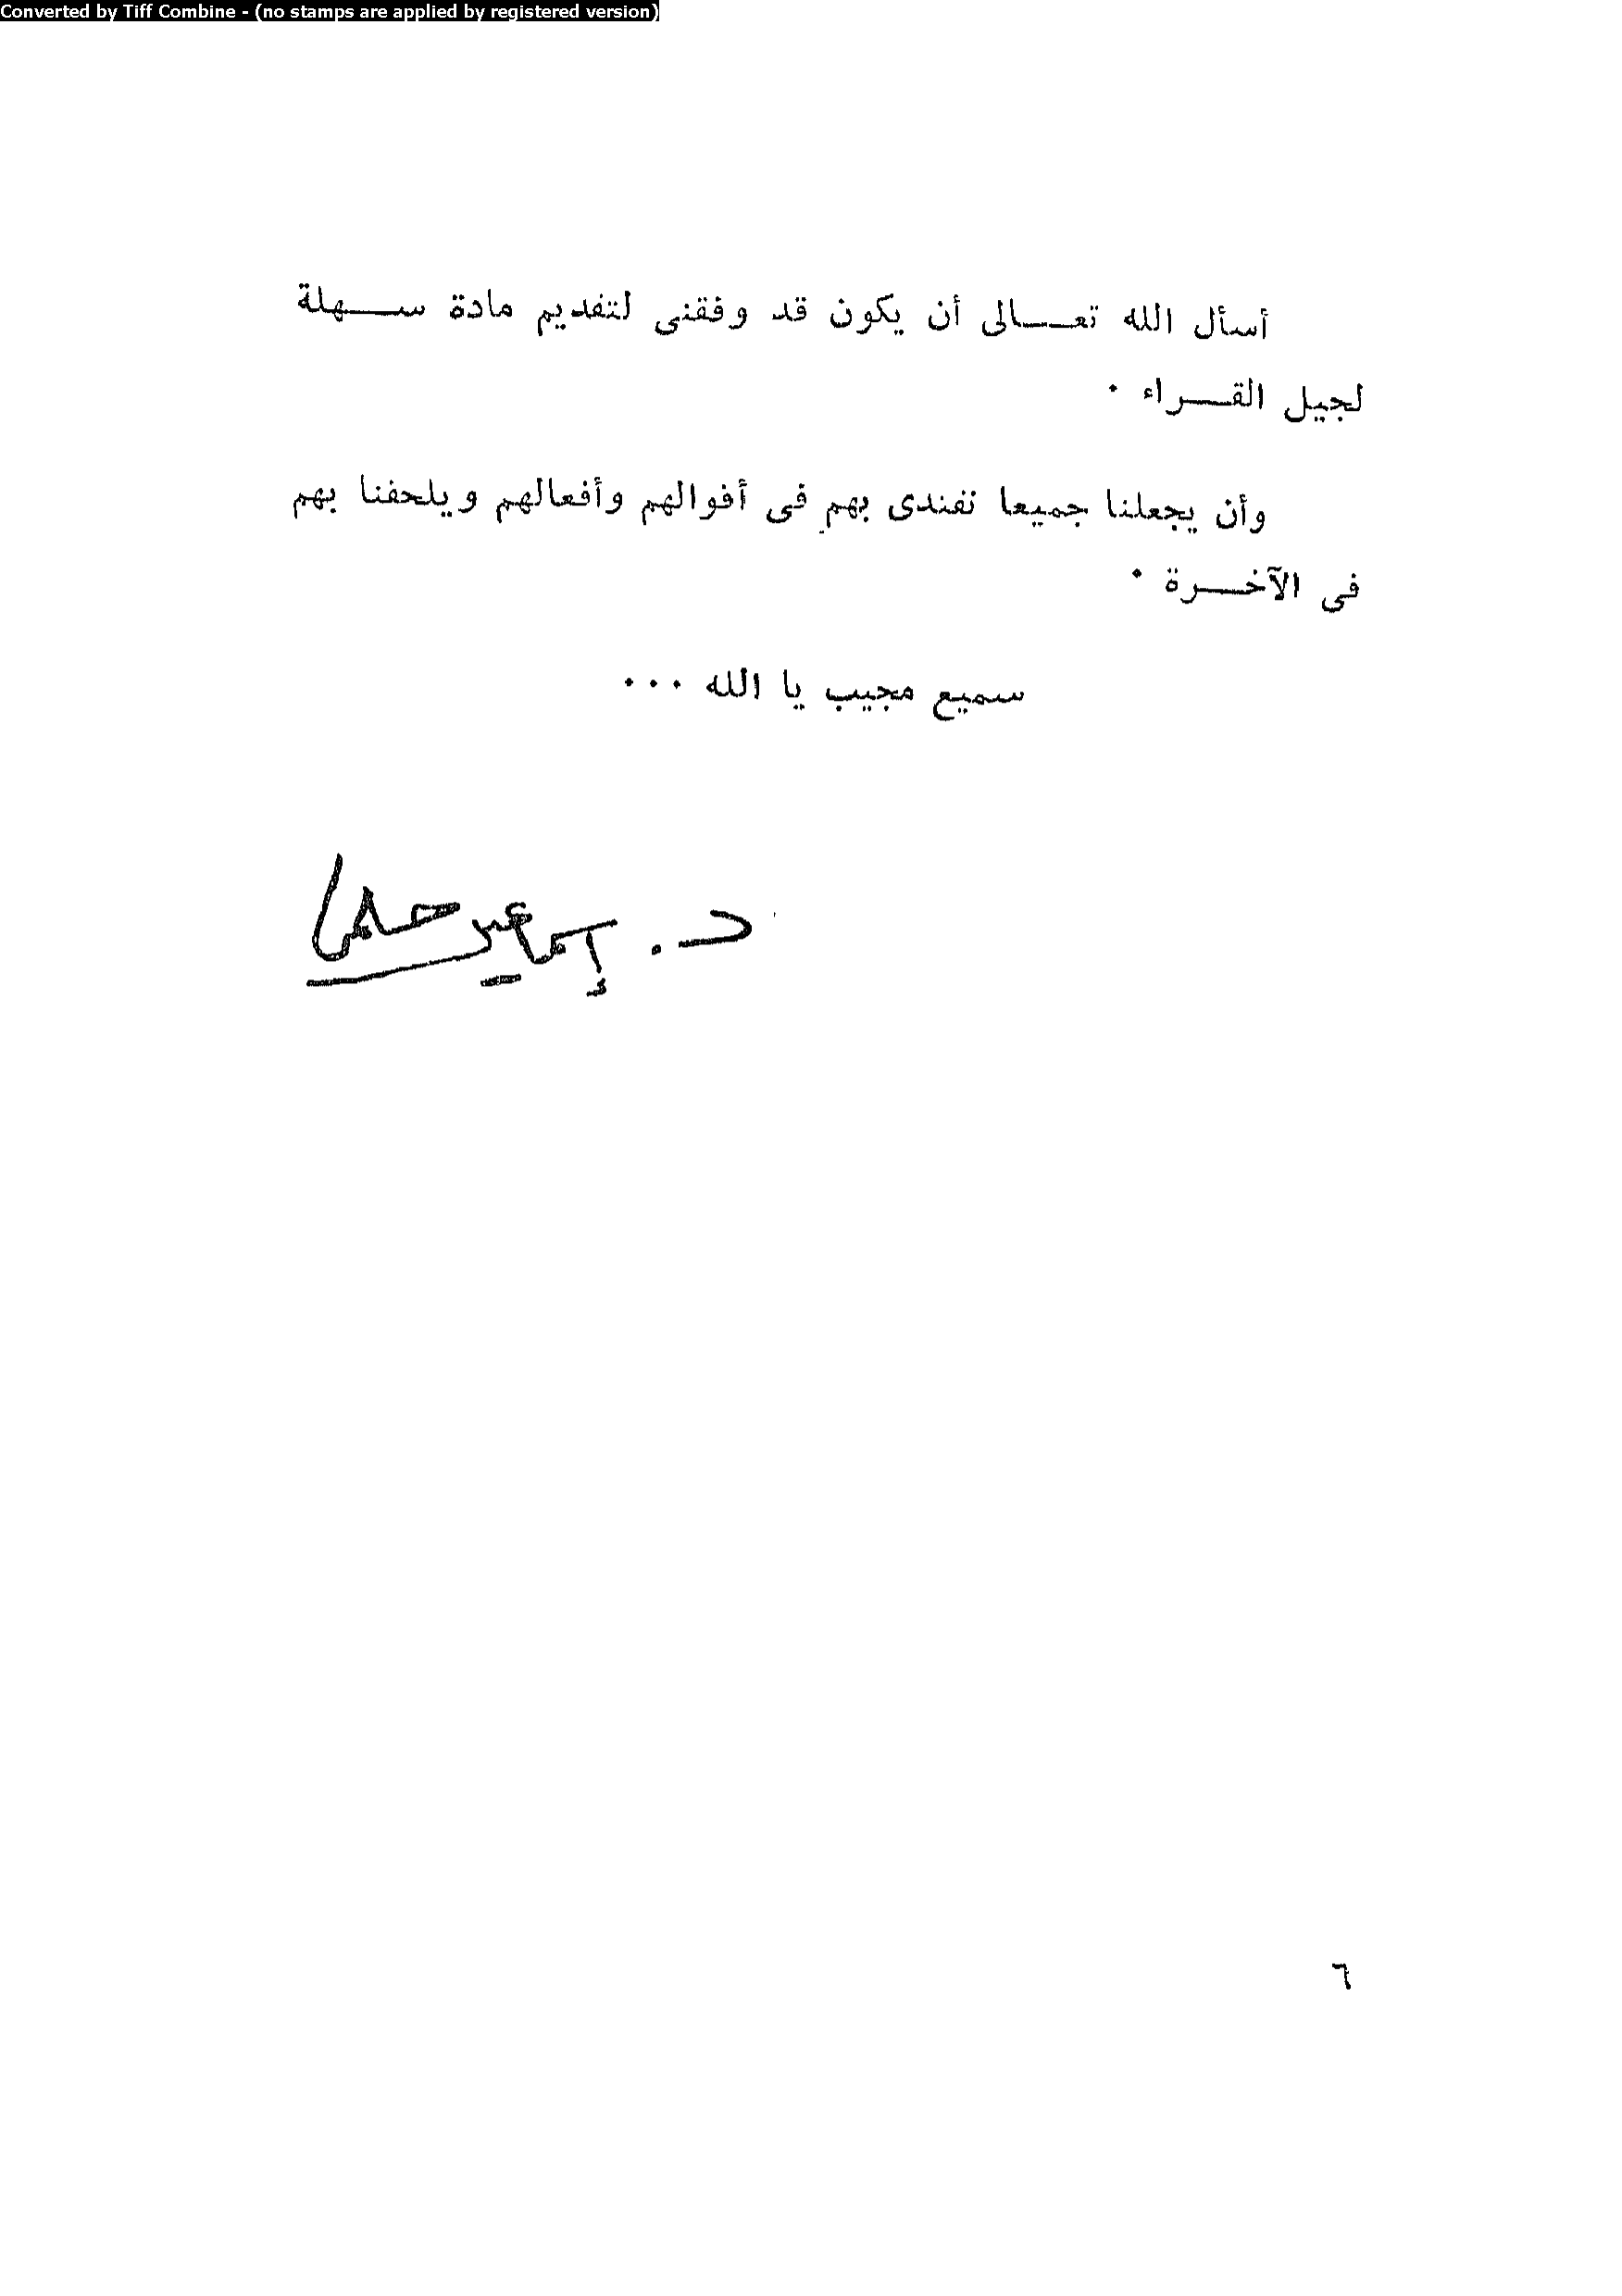 Converted by Tiff Combine - (no stamps are applied by registered version)
أسأل الله تعــالى أن يكون قد وفقنى لتقديم مادة ســهلة
لجيل القــراء ٠
وأن يجعلنا جميعا نقتدى بهم فى أقوالهم وأفعالهم ويلحقنا بهم
فى الآخــرة ٠
سميع مجيب يا الله ٠٠٠
د.
٦